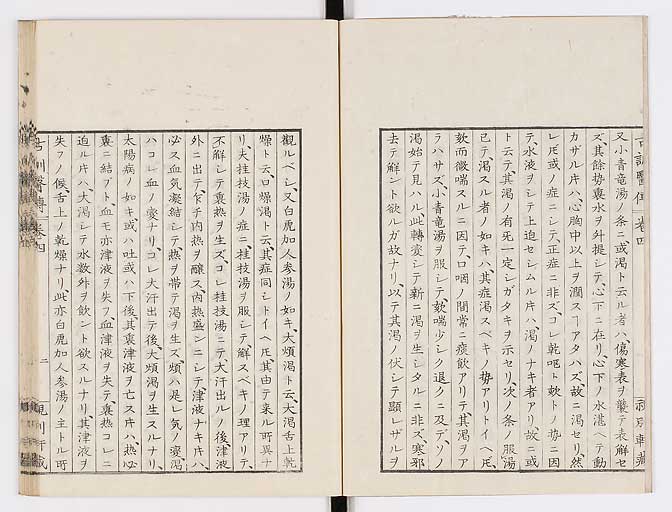 又小青竜湯ノ条ニ或渇ト云ル者ハ、傷寒表ヲ襲テ表解セ
ズ、其餘勢裏水ヲ外提シテ、心下ニ在リ、心下ノ水滙ヘテ動
カザル片ハ、心胸中以上ヲ潤スヿアタハズ、故ニ渇セリ、然
レ𪜈或ノ症ニシテ、正症ニ非ズ、コレ乾呕ト欬トノ勢ニ因
テ、水液ヲシテ上迫セシムル片ハ、渇ノナキ者アリ、故ニ或
ト云テ其渇ノ有無一定シガタキヲ示セリ、次ノ条ノ服湯
已テ、渇スル者ノ如キハ、其症渇スベキノ勢アリトイヘ𪜈、
欬而微喘スルニ因テ、口咽ノ間常ニ痰飲アリテ其渇ヲア
ラハサズ、小青竜湯ヲ服シテ、欬喘少シク退クニ及テ、ソノ
渇始テ見ハル、此轉変シテ新ニ渇ヲ生シタルニ非ズ、寒邪
去テ解ント欲ルガ故ナリ、以テ其渇ノ伏シテ顕レザルヲ
觀ルベシ、又白虎加人参湯ノ如キ、大煩渇ト云、大渇舌上乾
燥ト云、口燥渇ト云、其症同シトイヘ𪜈、其由テ来ル所異ナ
リ、夫桂枝湯ノ症ニ、桂枝湯ヲ服シテ、解スベキノ理アリテ、
不解シテ裏熱ヲ生ズ、コレ桂枝湯ニテ大汗出ルノ後、津液
外ニ出テ、乍チ内熱ヲ醸ス、内熱盛ンニシテ津液ナキ片ハ、
必ス血気凝結シテ熱ヲ帯テ渇ヲ生ズ、煩ハ是レ気ノ変、渇
ハコレ血ノ変ナリ、コレ大汗出テ後、大煩渇ヲ生スルナリ、
太陽病ノ如キ或ハ吐或ハ下後、其裏津液ヲ亡ス片ハ、熱必
裏ニ結ブト、血モ亦津液ヲ失フ、血津液ヲ失テ、裏熱コレニ
迫ル片ハ、大渇シテ水数舛ヲ飲ント欲スルナリ、其津液ヲ
失フノ候、舌上ノ乾燥ナリ、此亦白虎加人参湯ノ主トル所
古訓醫傳 卷四
二